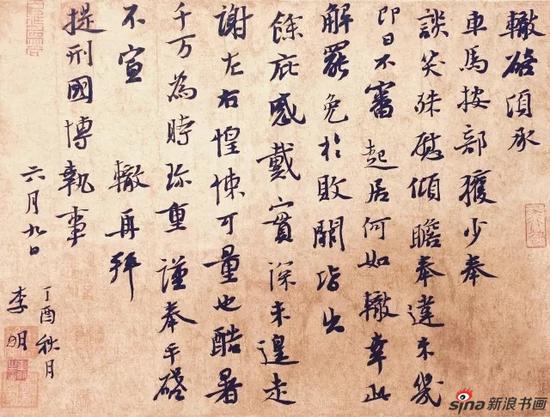 轍啓頃承
車馬按部獲少奉
談笑殊慰傾瞻奉違未幾
即日不審起居何如轍幸此
解罷免於敗闕皆出
餘庇感戴實深未遑走
謝左右惶悚可量也酷暑
千万為時珍重謹奉手啓
不宣 轍再拜
提刑國博執事
六月九日
丁酉秋月
李明
sina 新浪书画